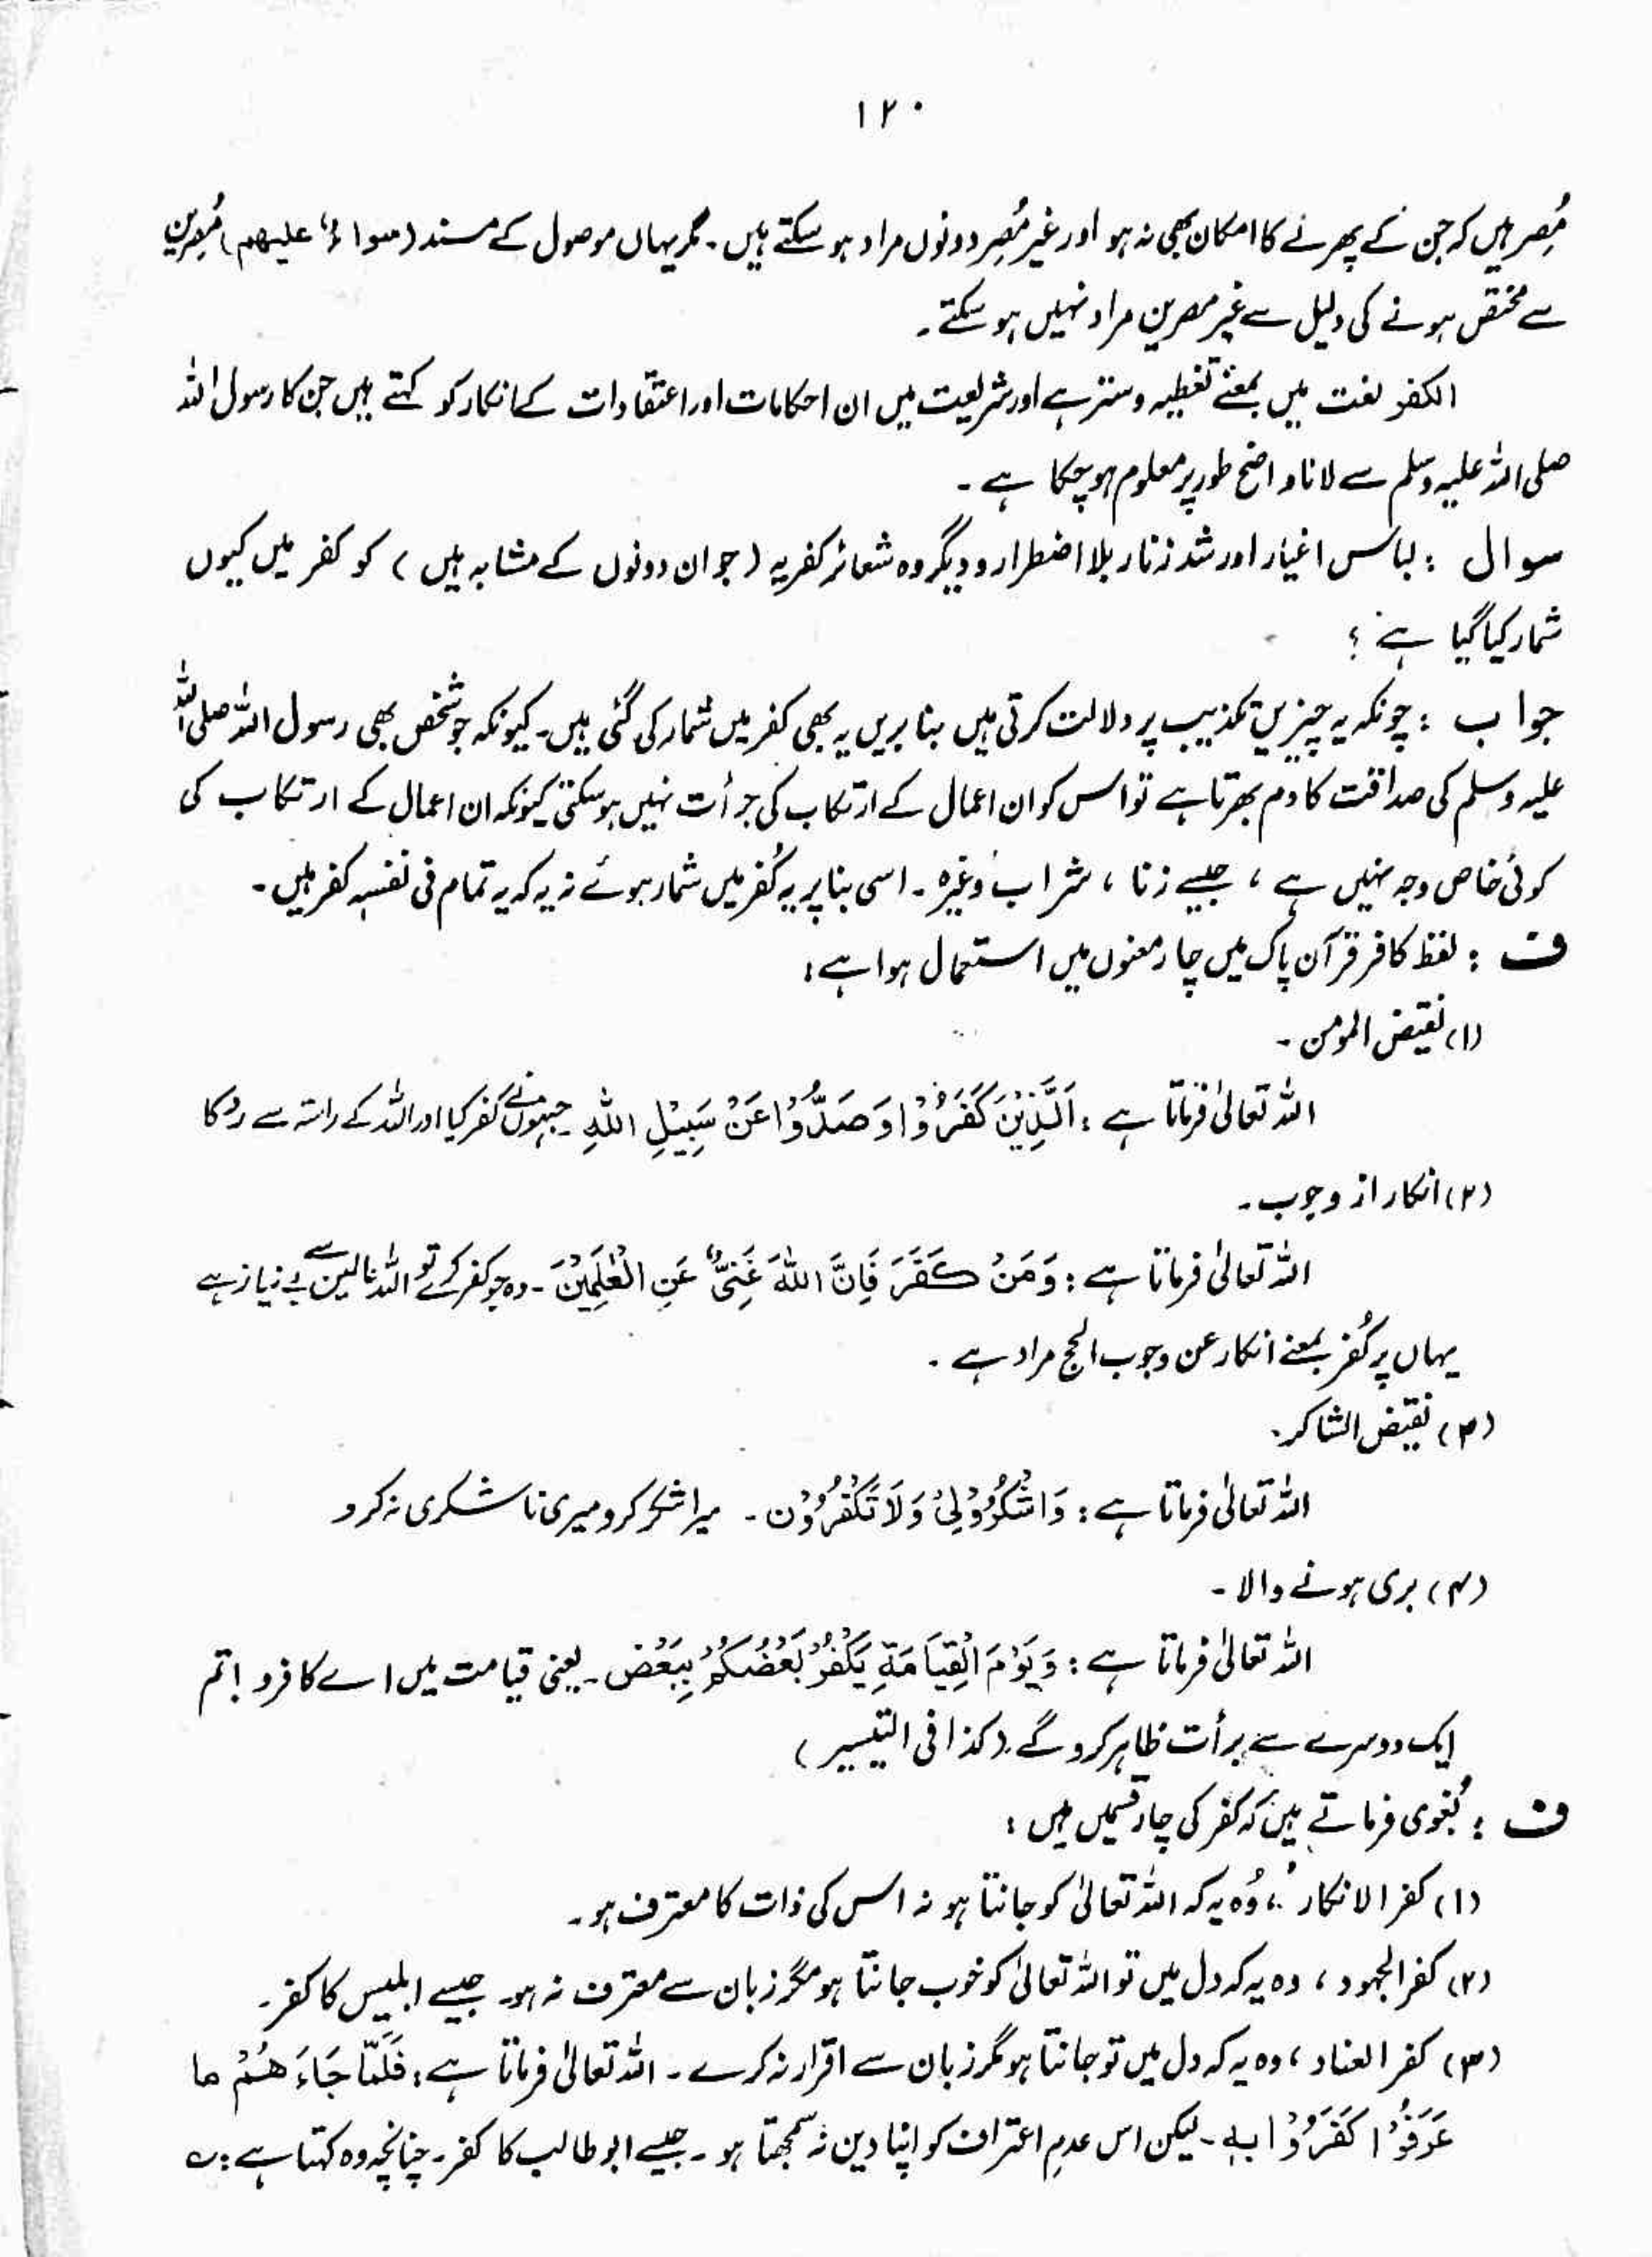 ۱۲۰
مُصر ہیں کہ جن کے پھرنے کا امکان بھی نہ ہو اور غیر مُصِر دونوں مراد ہو سکتے ہیں۔ مگر یہاں موصول کے مسند (سواءٌ علیھم) مُصِرین
سے مختص ہونے کی دلیل سے غیر مصرین مراد نہیں ہو سکتے۔
الکفر لغت میں بمعنے تغطیہ و ستر ہے اور شریعت میں ان احکامات اور اعتقادات کے انکار کو کہتے ہیں جن کا رسول اللہ
صلی اللہ علیہ وسلم سے لانا واضح طور پر معلوم ہو چکا ہے۔
سوال : لباس اغیار اور شد زنار بلا اضطرار و دیگر وہ شعائر کفریہ (جو ان دونوں کے مشابہ ہیں) کو کفر میں کیوں
شمار کیا گیا ہے ؟
جواب : چونکہ یہ چیزیں تکذیب پر دلالت کرتی ہیں بنا بریں یہ بھی کفر میں شمار کی گئی ہیں۔ کیونکہ جو شخص بھی رسول اللہ صلی اللہ
علیہ وسلم کی صداقت کا دم بھرتا ہے تو اس کو ان اعمال کے ارتکاب کی جرأت نہیں ہو سکتی کیونکہ ان اعمال کے ارتکاب کی
کوئی خاص وجہ نہیں ہے ، جیسے زنا ، شراب وغیرہ ۔ اسی بنا پر یہ کُفر میں شمار ہوئے نہ یہ کہ یہ تمام فی نفسہٖ کفر ہیں۔
ف : لفظ کافر قرآن پاک میں چار معنوں میں استعمال ہوا ہے :
(۱) نقیض المومن ۔
اللہ تعالیٰ فرماتا ہے : اَلَّذِیْنَ کَفَرُوْا وَ صَدُّوْا عَنْ سَبِیْلِ اللہِ ۔ جنہوں نے کفر کیا اور اللہ کے راستہ سے روکا
(۲) انکار از وجوب ۔
اللہ تعالیٰ فرماتا ہے : وَ مَنْ کَفَرَ فَاِنَّ اللہَ غَنِیٌّ عَنِ الْعٰلَمِیْنَ ۔ وہ جو کفر کرے تو اللہ عالمین سے بے نیاز ہے
یہاں پر کُفر بمعنے انکار عن وجوب الحج مراد ہے ۔
(۳) نقیض الشاکر ۔
اللہ تعالیٰ فرماتا ہے : وَ اشْکُرُوْ لِیْ وَ لَا تَکْفُرُوْن ۔ میرا شکر کرو میری نا شکری نہ کرو
(۴) بری ہونے والا ۔
اللہ تعالیٰ فرماتا ہے : وَ یَوْمَ الْقِیَامَۃِ یَکْفُرُ بَعْضُکُمْ بِبَعْض ۔ یعنی قیامت میں اے کافرو ! تم
ایک دوسرے سے برأت ظاہر کرو گے ۔ (کذا فی التیسیر)
ف : بُغوی فرماتے ہیں کہ کفر کی چار قسمیں ہیں :
(۱) کفر الانکار ، وُہ یہ کہ اللہ تعالیٰ کو جانتا ہو نہ اس کی ذات کا معترف ہو۔
(۲) کفر الجہود ، وہ یہ کہ دل میں تو اللہ تعالیٰ کو خوب جانتا ہو مگر زبان سے معترف نہ ہو۔ جیسے ابلیس کا کفر۔
(۳) کفر العناد ، وہ یہ کہ دل میں تو جانتا ہو مگر زبان سے اقرار نہ کرے ۔ اللہ تعالیٰ فرماتا ہے : فَلَمَّا جَاءَ ھُمْ ما
عَرَفُوْا کَفَرُوْا بہٖ ۔ لیکن اس عدمِ اعتراف کو اپنا دین نہ سمجھتا ہو ۔ جیسے ابو طالب کا کفر ۔ چنانچہ وہ کہتا ہے : ؎